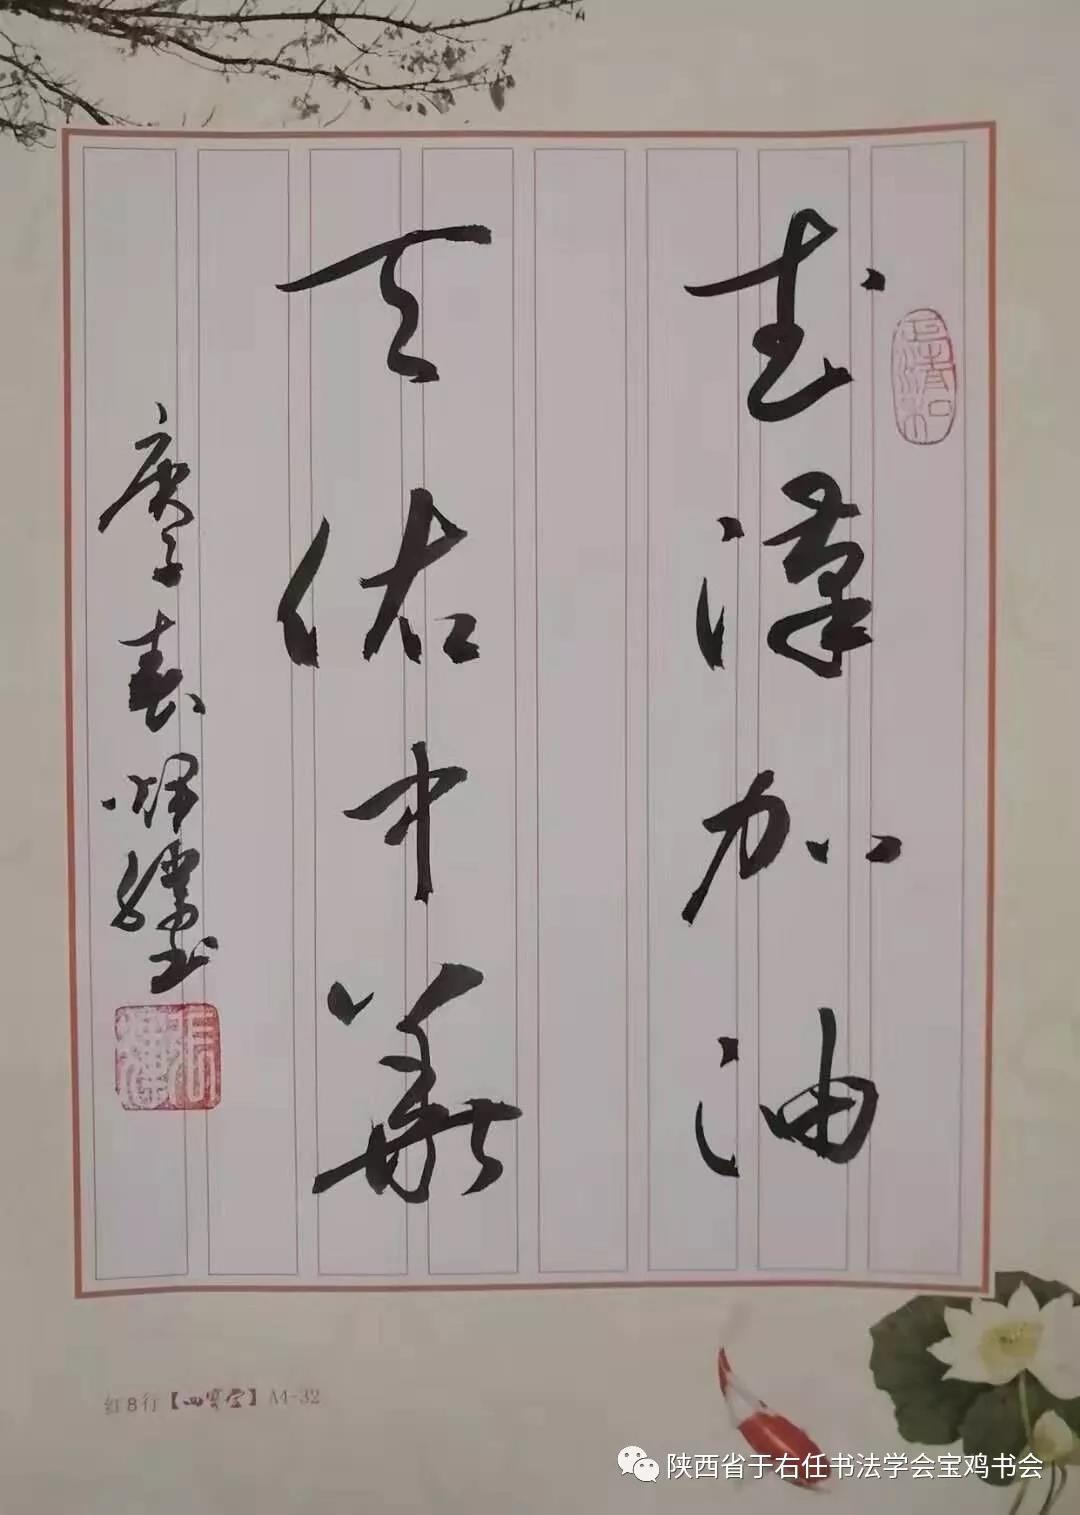 武漢加油
天佑中華
庚子春 书
红8行【四宝堂】A4-32
陕西省于右任书法学会宝鸡书会